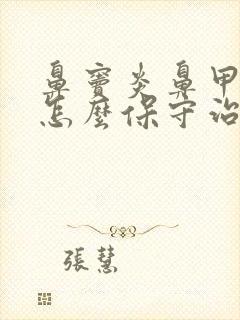 鼻竇炎鼻甲
怎麼保守治
張慧